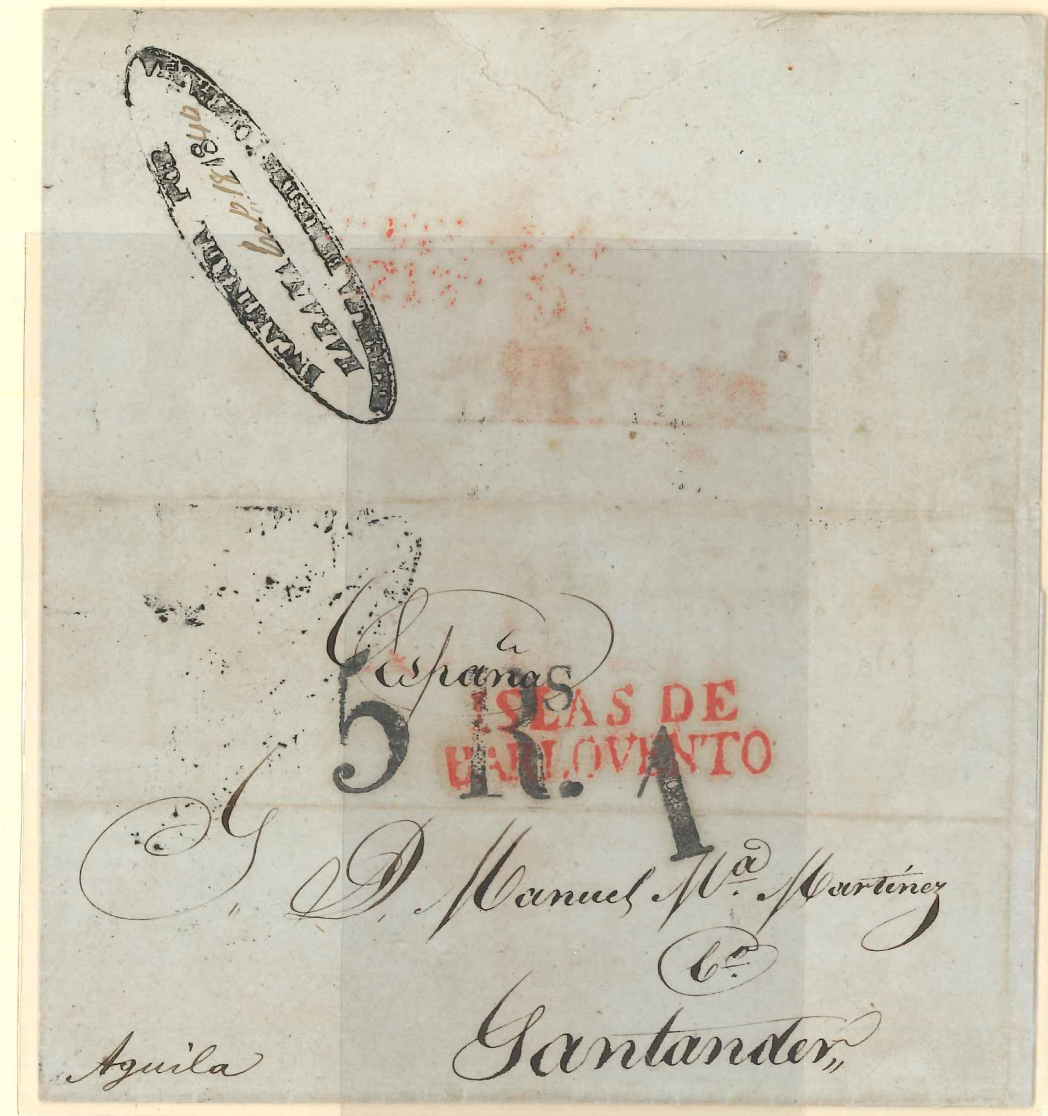 ENCAMINADA POR
HABANA
1840
España
5 Rs.
ISLAS DE
BARLOVENTO
1
S. D. Manuel Ma. Martínez
Co.
Santander
Aguila